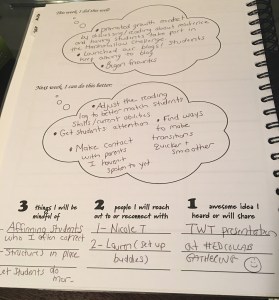 This week, I did this well:
• promoted growth mindset
by discussing/reading about
and having students take part in
the Marshmallow Challenge
• Launched our blogs! Students
keep asking to blog
• Began
Next week, I can do this better:
• Adjust the reading
log to better match students
skills/current abilities
• Get students attention
• Find ways
to make
transitions
quicker +
smoother
• Make contact
with parents
I haven't
spoken to yet
3 things I will be
mindful of
- Affirming students
who I often correct
- Structures in place
- Let students do
more
2 people I will reach
out to or reconnect with
1- Nicole T
2- Lauren (set up
buddies)
1 awesome idea I
heard or will share
TWT presentation
at #EDCOLLAB
GATHERING